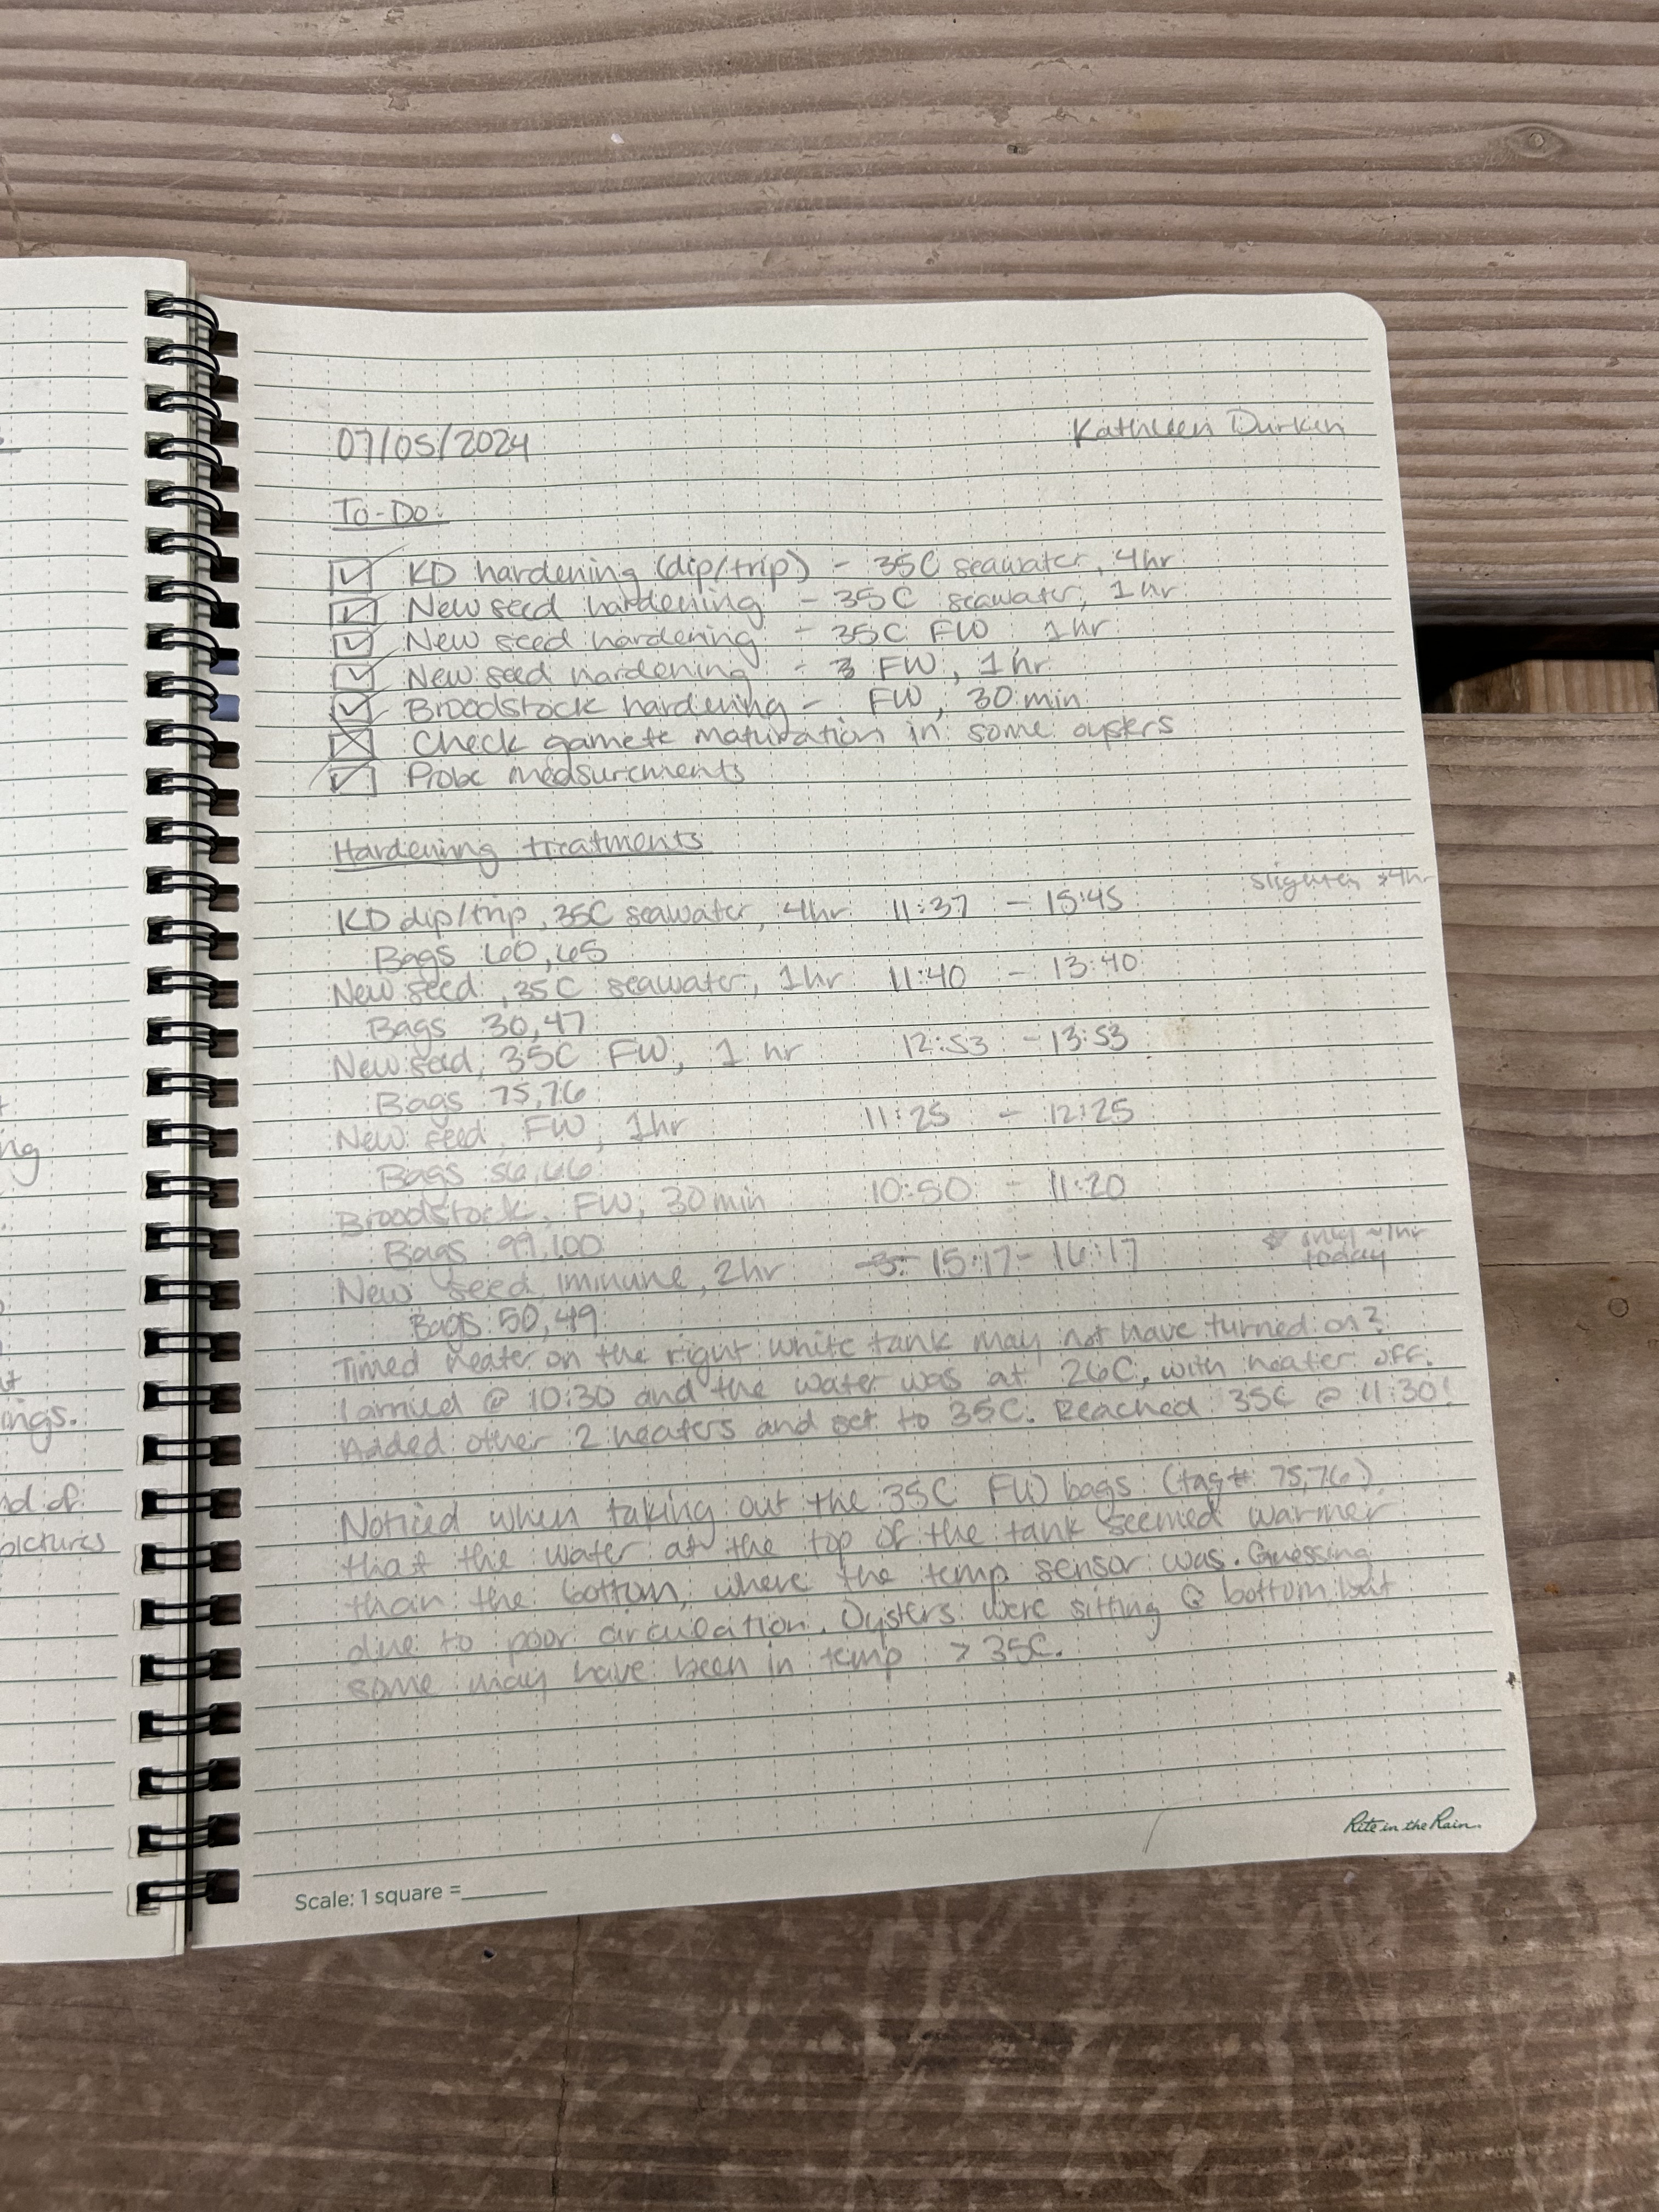 07/05/2024
Kathleen Durkin
To-Do:
KD hardening (dip/trip) - 35C seawater, 4hr
New seed hardening - 35C seawater, 1hr
New seed hardening - 35C FW 1hr
New seed hardening - FW, 1hr
Broodstock hardening - FW, 30 min
Check gamete maturation in some oysters
Probe measurements
Hardening treatments
slightly >4hr
KD dip/trip, 35C seawater, 4hr 11:37 - 15:45
Bags 60,65
New seed, 35C seawater, 1hr 11:40 - 13:40
Bags 30,47
New seed, 35C FW, 1 hr 12:53 - 13:53
Bags 75,76
New seed, FW, 1hr 11:25 - 12:25
Bags 56,66
Broodstock, FW, 30min 10:50 - 11:20
Bags 99,100
only ~1hr
today
New seed, immune, 2hr 15:17 - 16:17
Bags 50,49
Timed heater on the right white tank may not have turned on?
I arrived @ 10:30 and the water was at 26C, with heater off.
Added other 2 heaters and set to 35C. Reached 35C @ 11:30!
Noticed when taking out the 35C FW bags (tag# 75,76)
that the water at the top of the tank seemed warmer
than the bottom, where the temp sensor was. Guessing
due to poor circulation. Oysters were sitting @ bottom but
some may have been in temp > 35C.
Scale: 1 square =
Rite in the Rain.
ng
ings.
nd of
pictures